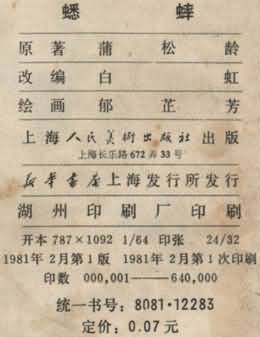 蟋蟀
原著 蒲松龄
改编 白虹
绘画 郁芷芳
上海人民美術出版社出版
上海长乐路672弄33号
新华書店上海发行所发行
湖州印刷厂印刷
开本 787×1092 1/64 印张 24/32
1981年2月第1版 1981年2月第1次印刷
印数 000,001——640,000
统一书号：8081·12283
定价：0.07元